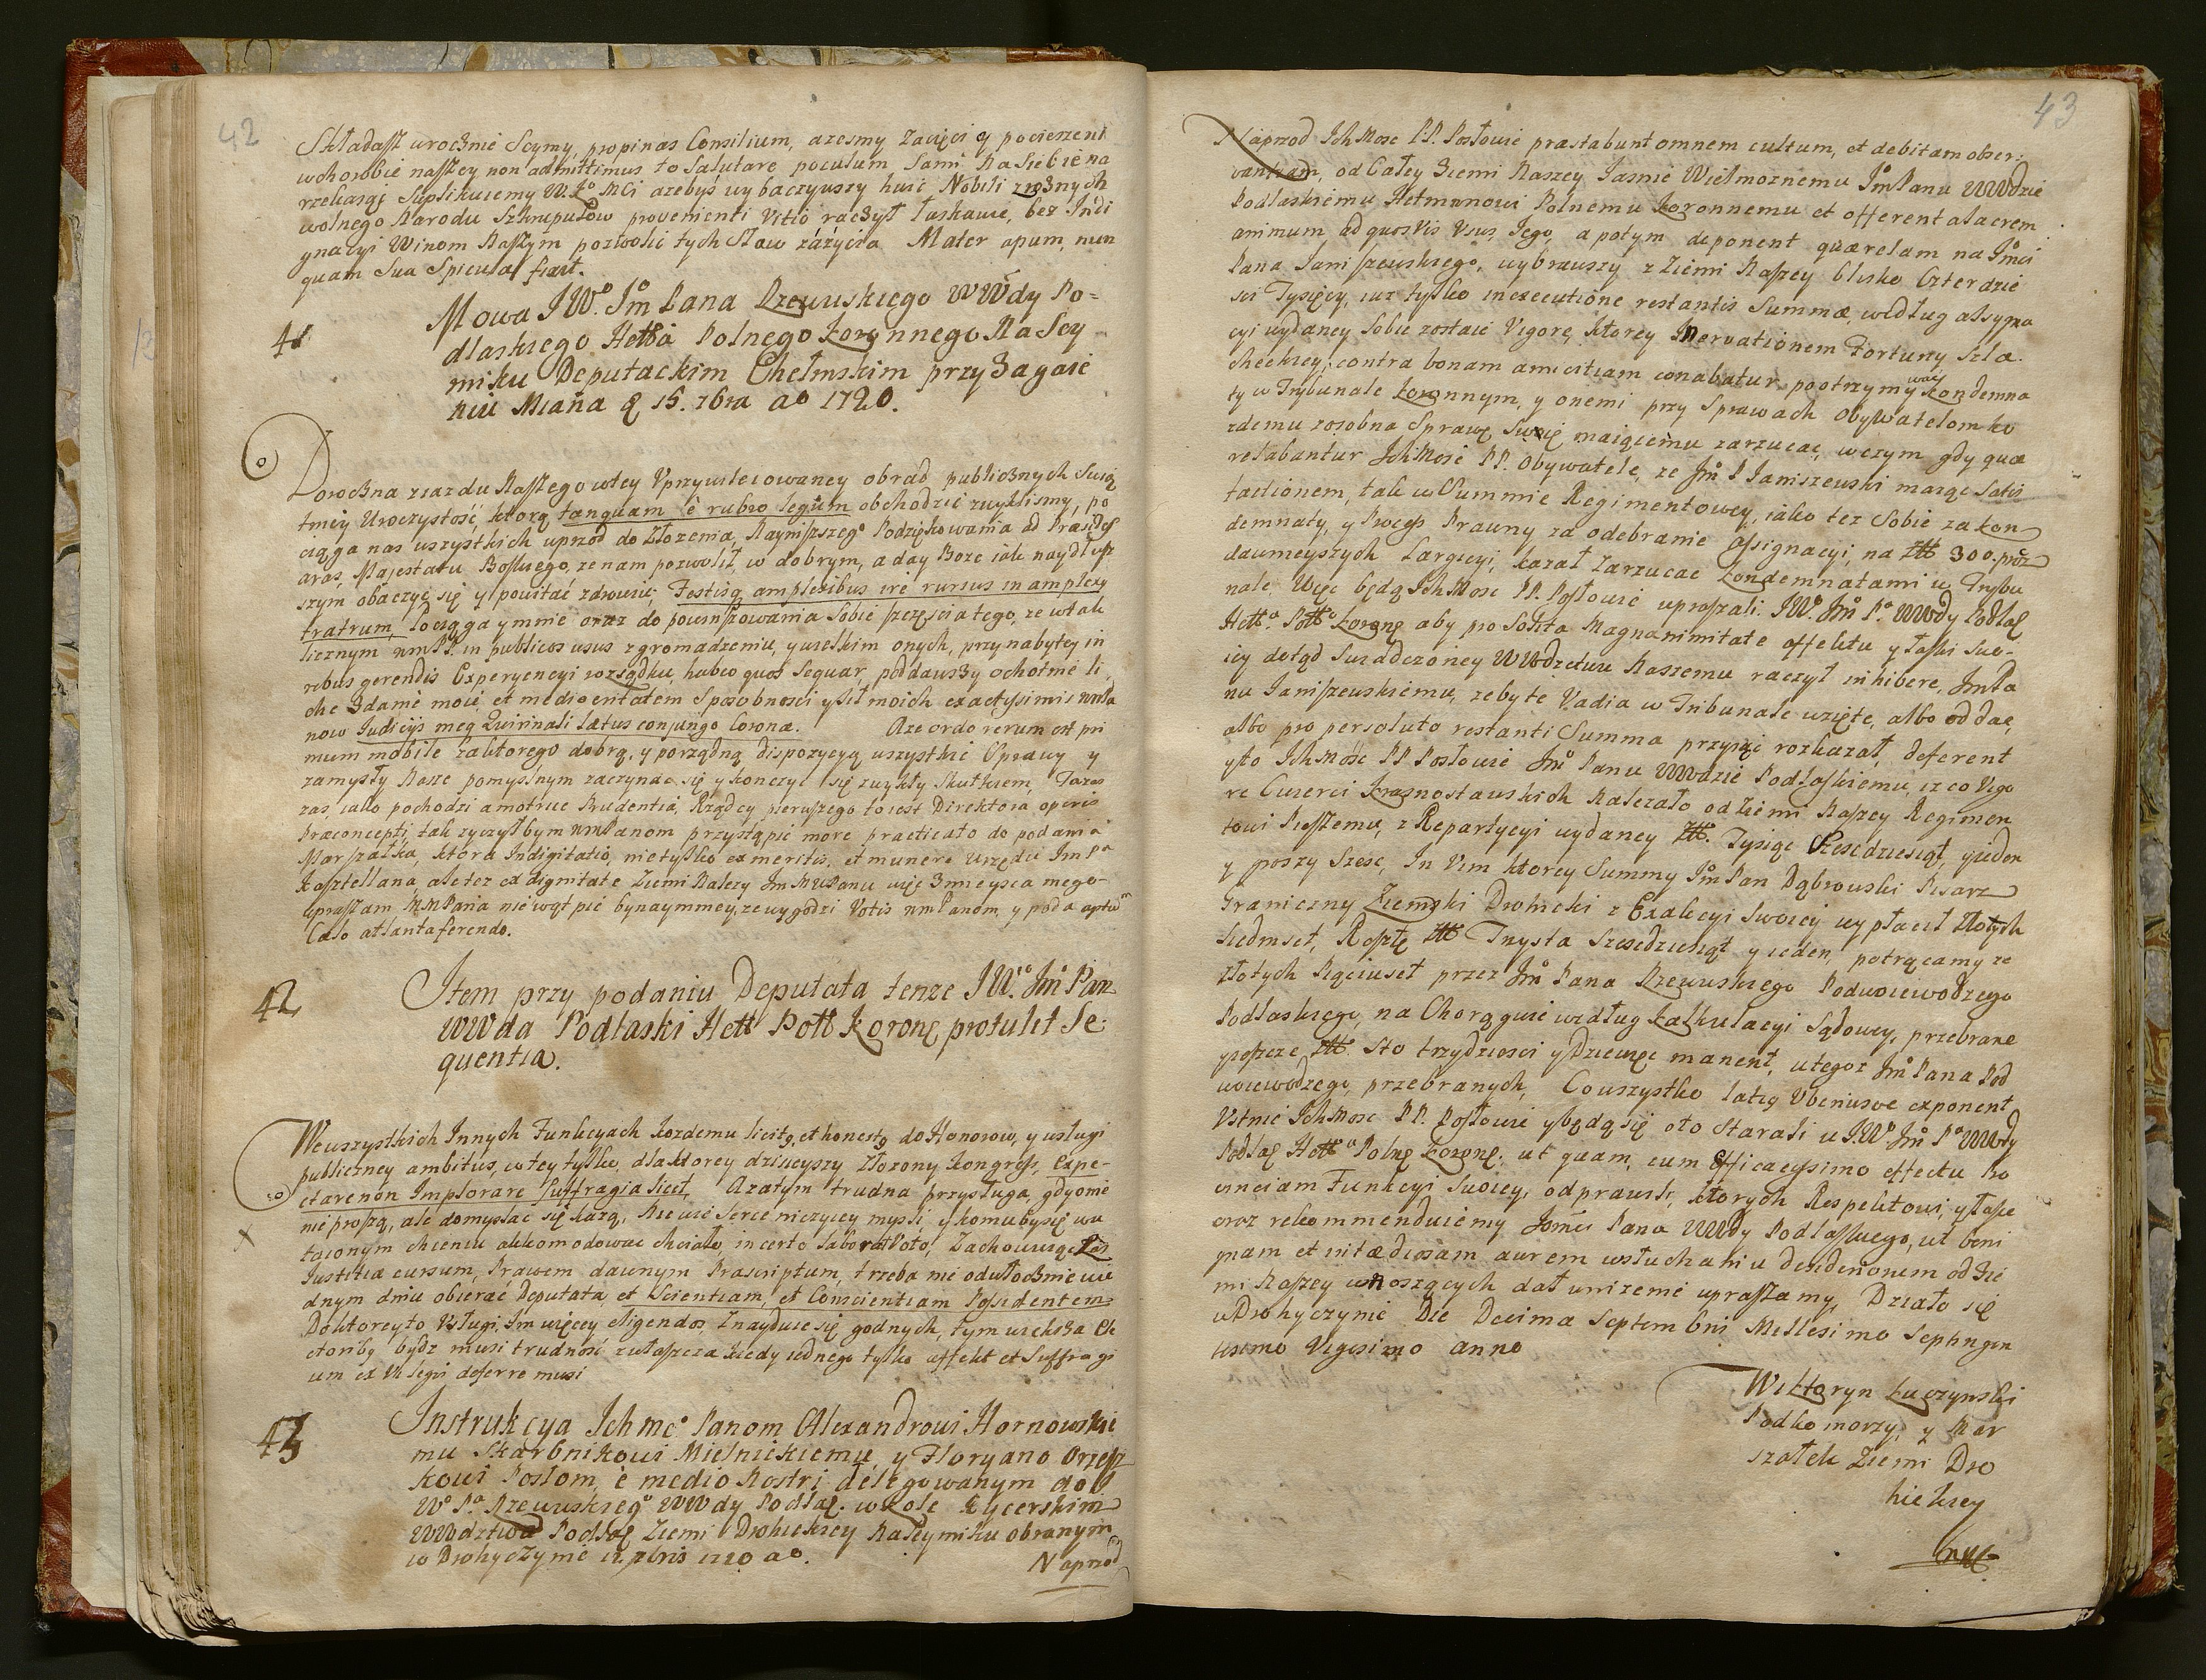 42
Składasz urocznie Seymy, propinas Consilium, azesmy Zacięci y pocieszeni
wchorobie naszey non admittimus to Salutare poculum Sami Nasiebie na
rzekaiąc Suplikuiemy W. K. Mci azebyś wybaczywszy huic Nobili
wolnego Narodu Szkrupułow provenienti Vitio raczył łaskawie, bez Indi
gnacyi Winom Naszym pozwolic tych Słow zażycia Mater apum, nun
quam Sua Spicula
41
Mowa J Wo. Jm Pana Rzewuskiego WWdy Po-
dlaskiego Hettá Polnego Koronnego Na Sey
miku Deputackim Chełmskim przy Zagaie
niu Miana d 15. 7bra ao 1720.
Doroczna ziazdu Naszego wtey Vprzywileiowaney obrad publicznych Swią
tnicy Uroczystość, ktorą tanquam è rubro legum obchodzić zwyklismy, po
ciąga nas wszystkich wprzod do Złożenia, Nayniższego Podziękowania ad Præsides
aras, Majestatu Boskiego, ze nam pozwolił, w dobrym, a day Boze iak naydłuz
szym obaczyć się y powitać zdrowiu; Festisq amplexibus ire rursus in amplexy
fratrum, Pociąga y mnie oraz do powinszowania Sobie szczęscia tego, ze wtak
licznym WmPP. in publicos usus zgromadzeniu, y wielkim onych, przy nabytey in
rebus gerendis Experyencyi rozsądku, habeo quos Sequar, poddawszy ochotnie li
che Zdanie moie, et mediocritatem Sposobności y sił moich exactissimis WmPa
now Judicijs meq Quirinali Lætus conjungo Coronæ. Aze ordo rerum est pri
mum mobile zaktorego dobrą, y porządną dispozycyą wszystkie Sprawy y
zamysły Nasze pomyslnym zaczynać się y konczyć się zwykły Skutkiem, Taraz
zas, iako pochodzi a motrice Prudentia, Rządcy, pierwszego to iest Direktora operis
Præconcepti, tak zyczyłbym WmPanom przystąpić more practicato do podania
Marszałka, ktora Indigitatio, nietylko ex meritis, et munere Urzędu Jm Pa
Kasztellana, ale tez ex dignitate Ziemi Nalezy Jm Panu więc Zmieysca mego
upraszam WMPana nie wątpić bynaymniey, ze wygodzi Votis WmPanom y poda aptum
Cælo atlanta ferendo.
42
Item przy podaniu Deputata tenze J W. Jm Pan
WWda Podlaski Hett Poll Koronę protulit Se
quentia.
We wszystkich Innych Funkcyach kozdemu licito, et honesto do Honorow, y usługi
publiczney ambitus, wtey tylko, dla ktorey dzisieyszy złozony Kongress, expe-
ctare non Implorare Suffragia licet. Azatym trudna przysługa, gdy o nie
nie proszą, ale domyslac się kazą. Nie wie Serce niczyiey mysli y komu by się wu
taionym chceniu akkomodowac chciało, incerto laborat Voto, Zachowuiąc Pas
Justitiæ cursum, Prawem dawnym Præscriptum, trzeba nie odwłocznie ie
dnym dniu obierac Deputata et Scientiam, et Conscientiam Possidentem
Doktoreyto Usługi, Im więcey eligendos, Znayduie się godnych, tym większa Ele
ctorib9 bydz musi trudność zwłaszcza kiedy iednego tylko affekt et Suffragi
um ex Vi legis deferre musi
43
Instrukcya Jchmc° Panom Alexandrowi Hornowski
mu Skarbnikowi Mielnickiemu, y Floryano Orzesz
kowi Posłom, è medio Nostri delegowanym do J
W° P° Rzewuskieg° WWdy Podlaę. wKole Rycerskim
WWdztwa Podlaę Ziemi Drohickiey Na Seymiku obranym
w Drohyczynie 12. 7bris 1720 ao.
Naprzod
43
Naprzod Jch Mosc P.P. Posłowie præstabunt omnem cultum, et debitam obser-
vantiam, od Całey Ziemi Naszey Jasnie Wielmoznemu Jm Panu WWdzie
Podlaskiemu Hetmanowi Polnemu Koronnemu et offerent alacrem
animum ad quosvis Usus Jego, a potym deponent quærelam na Jmci
Pana Janiszewskiego, wybrawszy z Ziemi Naszey blisko Czterdzie
sci Tysięcy, iuz tylko in executione restantis Summæ, według assygna
cyi wydaney Sobie zostaie Vigore, ktorey Inervationem Fortuny Szla-
checkiey, contra bonam amicitiam conabatur pootrzymywać Kondemna
ty w Trybunale Koronnym, y onemi przy Sprawach Obywatelom ko
zdemu zosobna Sprawę Swoię maiącemu zarzucac, wczym gdy quæ
relabantur Jch Mosc PP. Obywatele, ze Jm P Janiszewski maiąc Satis
factionem, tak w Summie Regimentowey, iako tez Sobie zakon
demnaty, y Process Prawny za odebranie assignacyi, na Złł 300. proz
dawnieyszych Largicyi, kazał Zarzucac Kondemnatami w Trybu
nale. Więc będą Jch Mosc PP. Posłowie upraszali. J W° Jm P° WWdy Podlaę
Hett° Poll° Koronę aby pro Solita Magnanimitate affektu y łaski Swo-
iey dotąd Swiadczoney WWdztwu Naszemu raczył inhibere, Jm Pa
nu Janiszewskiemu, zeby te Vadia w Tribunale wzięte, albo oddac,
albo pro persoluto restanti Summa przyiąc rozkazał, deferent
y to Jch Mosc PP Posłowie Jm Panu WWdzie Podlaskiemu, iz co Vigo
re Cwierci Krasnostawskich Nalezało od Ziemi Naszey Regimen
towi Pieszemu, z Repartycyi wydaney Złł. Tysiąc Szescdziesiąt, y ieden
y groszy Szesc, In Vim ktorey Summy Jm Pan Dąbrowski Pisarz
Graniczny Ziemski Drohicki z Exakcyi Swoiey wypłacił Złotych
Siedmset, Resztę Złł Trzysta Szescdziesiąt y ieden, potrącamy ze
złotych Pięciuset przez Jm Pana Rzewuskiego Podwoiewodzego
Podlaskiego, na Chorągwie według Kalkulacyi Sądowey, przebrane
y ieszcze Złł. Sto trzydziesci y Dziewięc manent, u tegoz Jm Pana Pod
woiewodzego, przebranych, Co wszystko latiq Uberiusve exponent
Ustnie Jch Mosc PP. Posłowie y będą się oto Starali u J.W° Jm P° WWdy
Podlaę Hett° Polnę Koronę. ut quam, cum Efficacyssimo effectu Pro
vinciam Funkcyi Swoiey, odprawili, ktorych Respektowi, y łasce
oraz rekommenduiemy Jmci Pana WWdy Podlaskiego, ut beni
gnam et aurem wsłuchaniu desideriorum od Zie
mi Naszey wnoszących dał unizenie upraszamy, Działo się
w Drohyczynie Die Decima Septembris Millesimo Septingen
tesimo Vigesimo anno
Wiktoryn Kuczynski
Podkomorzy, y Mar
szałek Ziemi Dro
hickiey